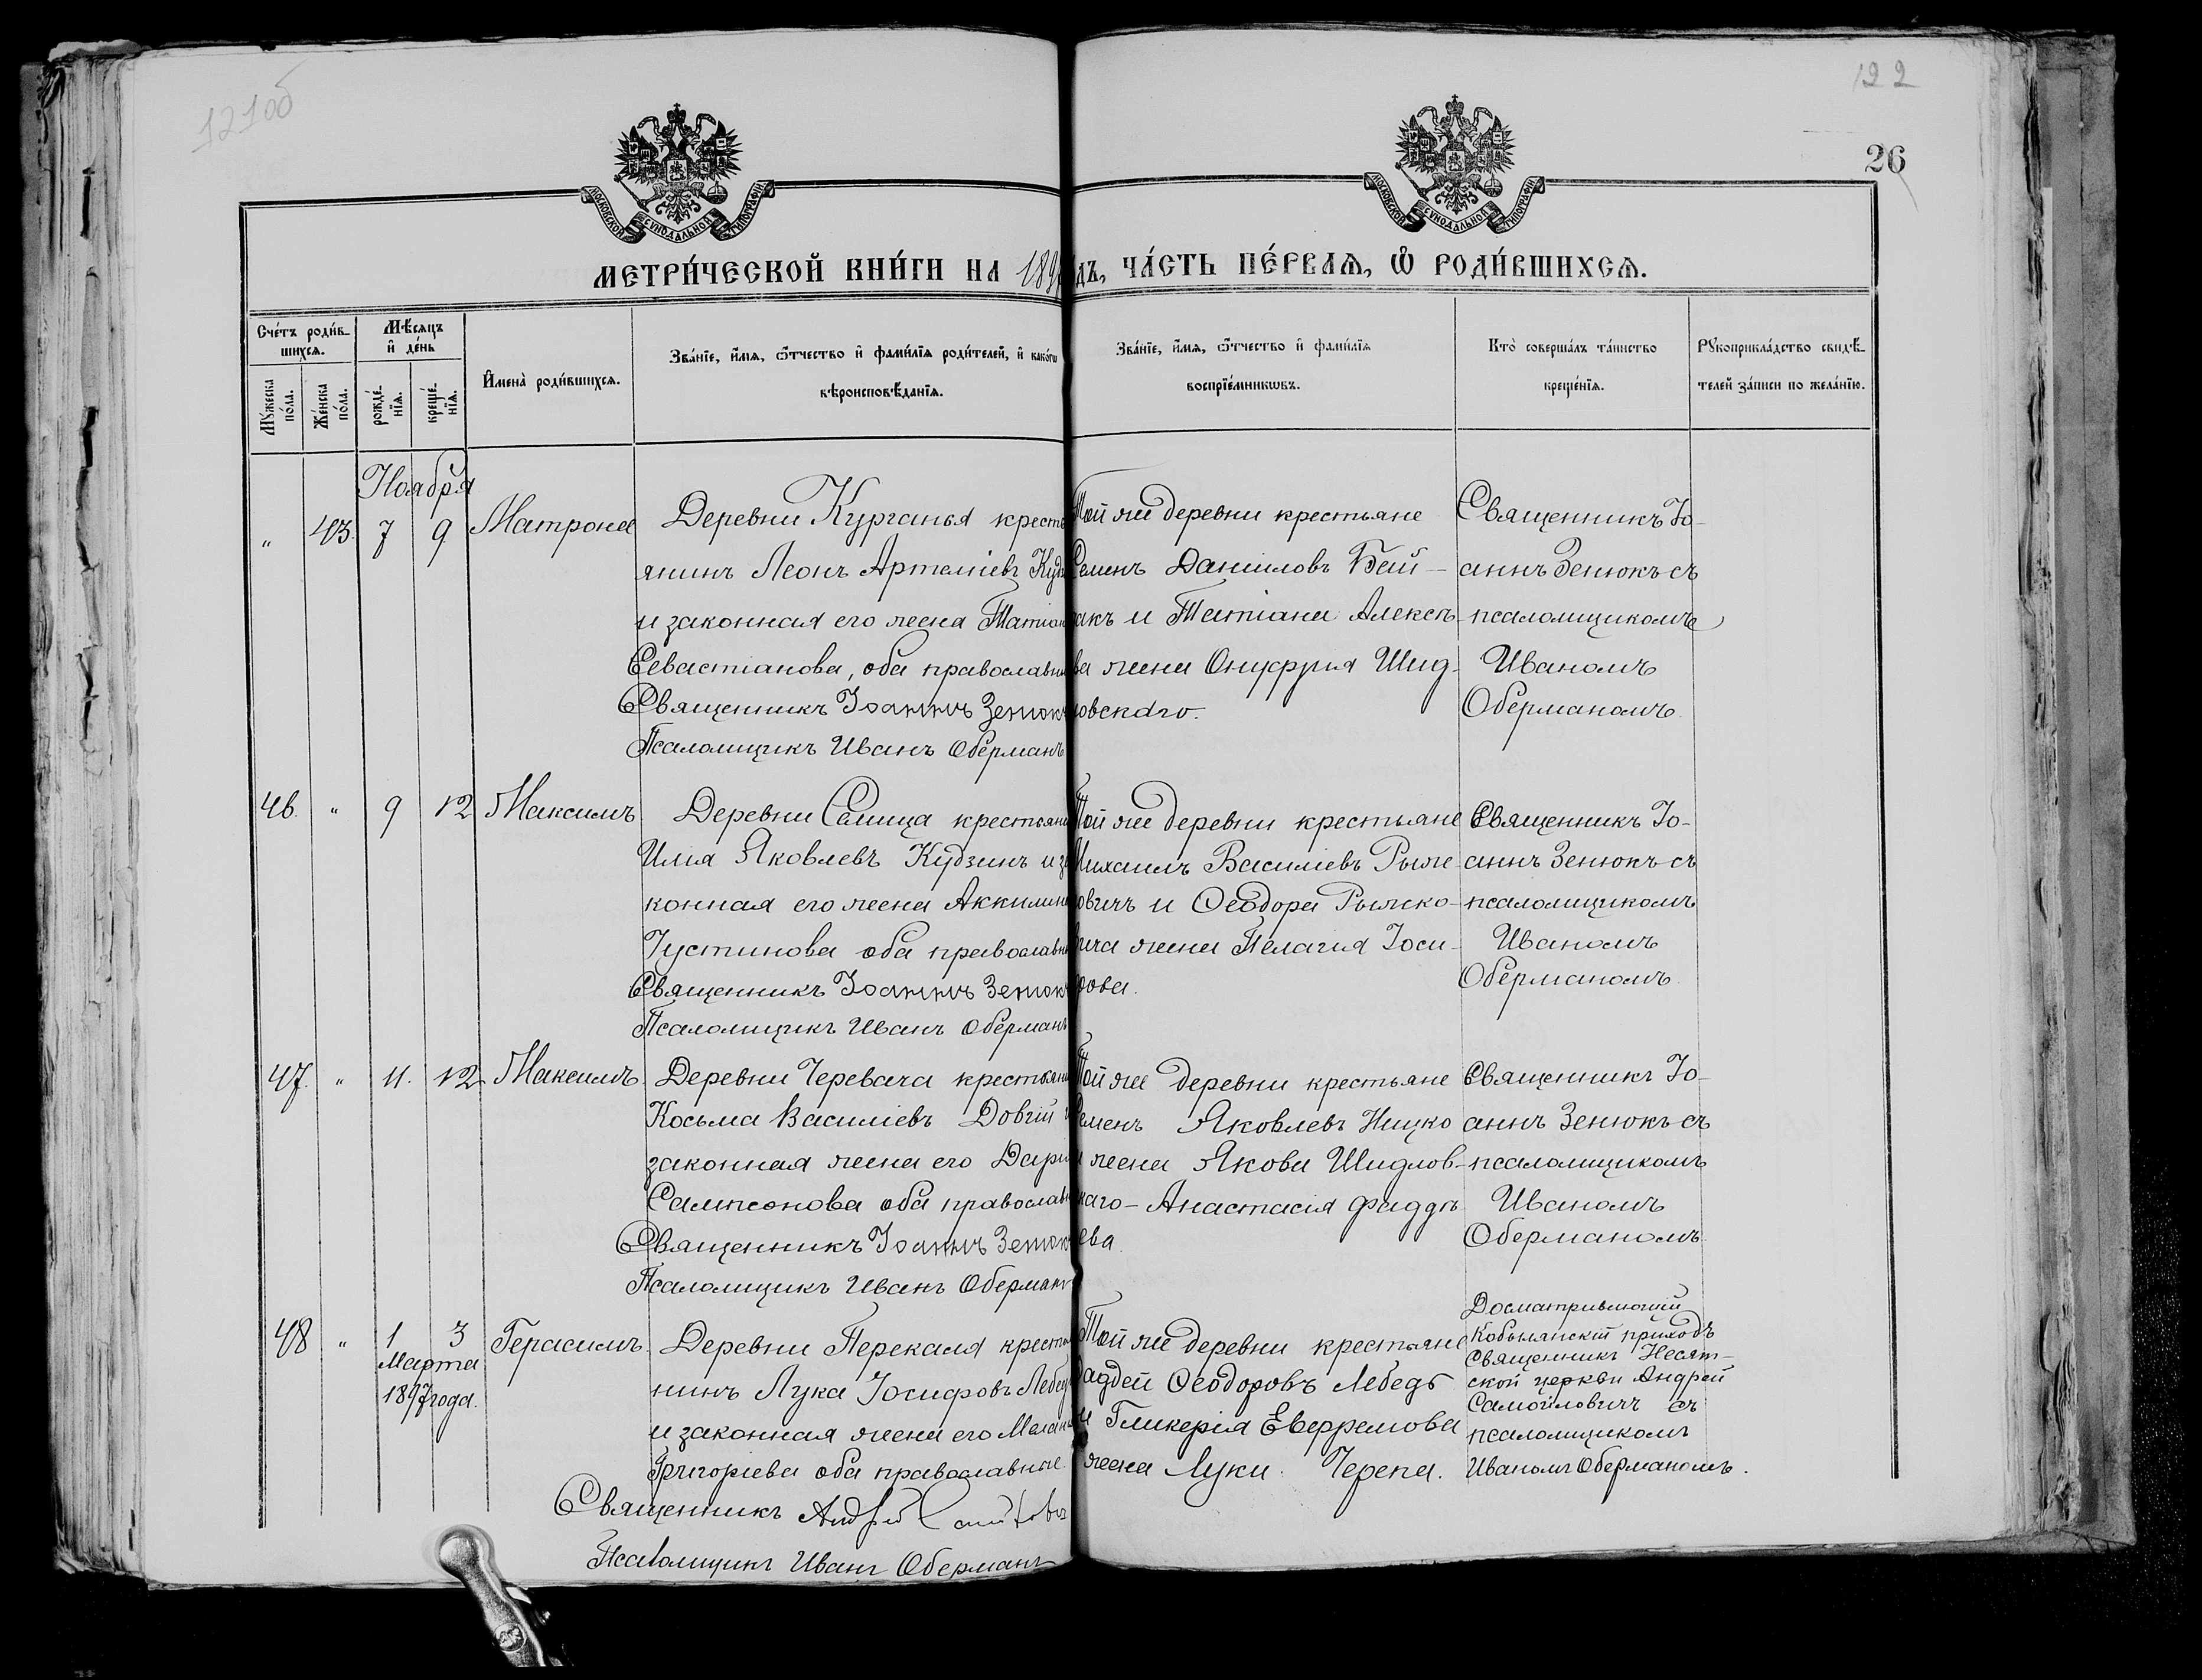 121об
122
26
МОСКОВСКОЙ СѴНОДАЛЬНОЙ ТИПОГРАФІИ
МОСКОВСКОЙ СѴНОДАЛЬНОЙ ТИПОГРАФІИ
МЕТРИ́ЧЕСКОЙ КНИ́ГИ НА 189 ДЪ, ЧА́СТЬ ПЕ́РВАѦ, Ѽ РОДИ́ВШИХСѦ.
Сче́тъ роди́в-
шихсѧ.
Му́жеска
по́ла.
Же́нска
по́ла.
Мѣ́сѧцъ
и҆ де́нь
рожде́-
нїѧ.
креще́-
нїѧ.
И҆мена̀ роди́вшихсѧ.
Зва́нїе, и҆́мѧ, ѻ҆́тчество и҆ фами́лїѧ роди́телей, и҆ како́гѡ
вѣроисповѣ́данїѧ.
Зва́нїе, и҆́мѧ, ѻ҆́тчество и҆ фами́лїѧ
воспрїе́мникѡвъ.
Кто̀ соверша́лъ та́инство
креще́нїѧ.
Рꙋкоприкла́дство свидѣ́-
телей за́писи по жела́нїю.
Ноября
" 43. 7 9 Матрона
Деревни Курганья кресть
янинъ Леонъ Артеміевъ
и законная его жена Татіан
Севастіанова, оба православн
Священникъ Іоаннъ Зенюкъ
Псаломщикъ Иванъ Оберманъ
Той же деревни крестьяне
Семенъ Даниловъ Бай-
дакъ и Татіана Алексѣ-
ва жена Онуфрія Шид-
ловскаго.
Священникъ Іо-
аннъ Зенюкъ съ
псаломщикомъ
Иваномъ
Оберманомъ.
46. " 9 12 Максимъ
Деревни Селища крестьяни
Илія Яковлевъ Кудзинъ и за
конная его жена Аккилина
Іустинова оба православн
Священникъ Іоаннъ Зенюкъ
Псаломщикъ Иванъ Оберманъ
Той же деревни крестьяне
Михаилъ Василіевъ Рыжк
овичъ и Ѳеодора Рыжко-
вича жена Пелагія Іоси-
фова.
Священникъ Іо-
аннъ Зенюкъ съ
псаломщикомъ
Иваномъ
Оберманомъ
47. " 11. 12 Максимъ.
Деревни Черевача крестьяни
Косьма Василіевъ Довгій и
законная жена его Дарія
Сампсонова оба православн
Священникъ Іоаннъ Зенюкъ
Псаломщикъ Иванъ Оберманъ
Той же деревни крестьяне
Семенъ Яковлевъ Ницко
и жена Якова Шидлов-
скаго - Анастасія Фаддѣ
ева.
Священникъ Іо-
аннъ Зенюкъ съ
псаломщикомъ
Иваномъ
Оберманомъ
48 " 1 3 Герасимъ.
Марта
1897 года.
Деревни Перекаля кресть
нинъ Лука Іосифовъ Лебед
и законная жена его Мелані
Григоріева оба православные.
Священникъ Андрей Самойлович
Псаломщикъ Иванъ Оберманъ
Той же деревни крестьяне
Фаддей Ѳеодоровъ Лебедь
и Гликерія Евфремова
жена Луки Черепа.
Досматривающій
Кобылянскій приходъ
Священникъ Несят-
ской церкви Андрей
Самойловичъ съ
псаломщикомъ
Иваномъ Оберманомъ.